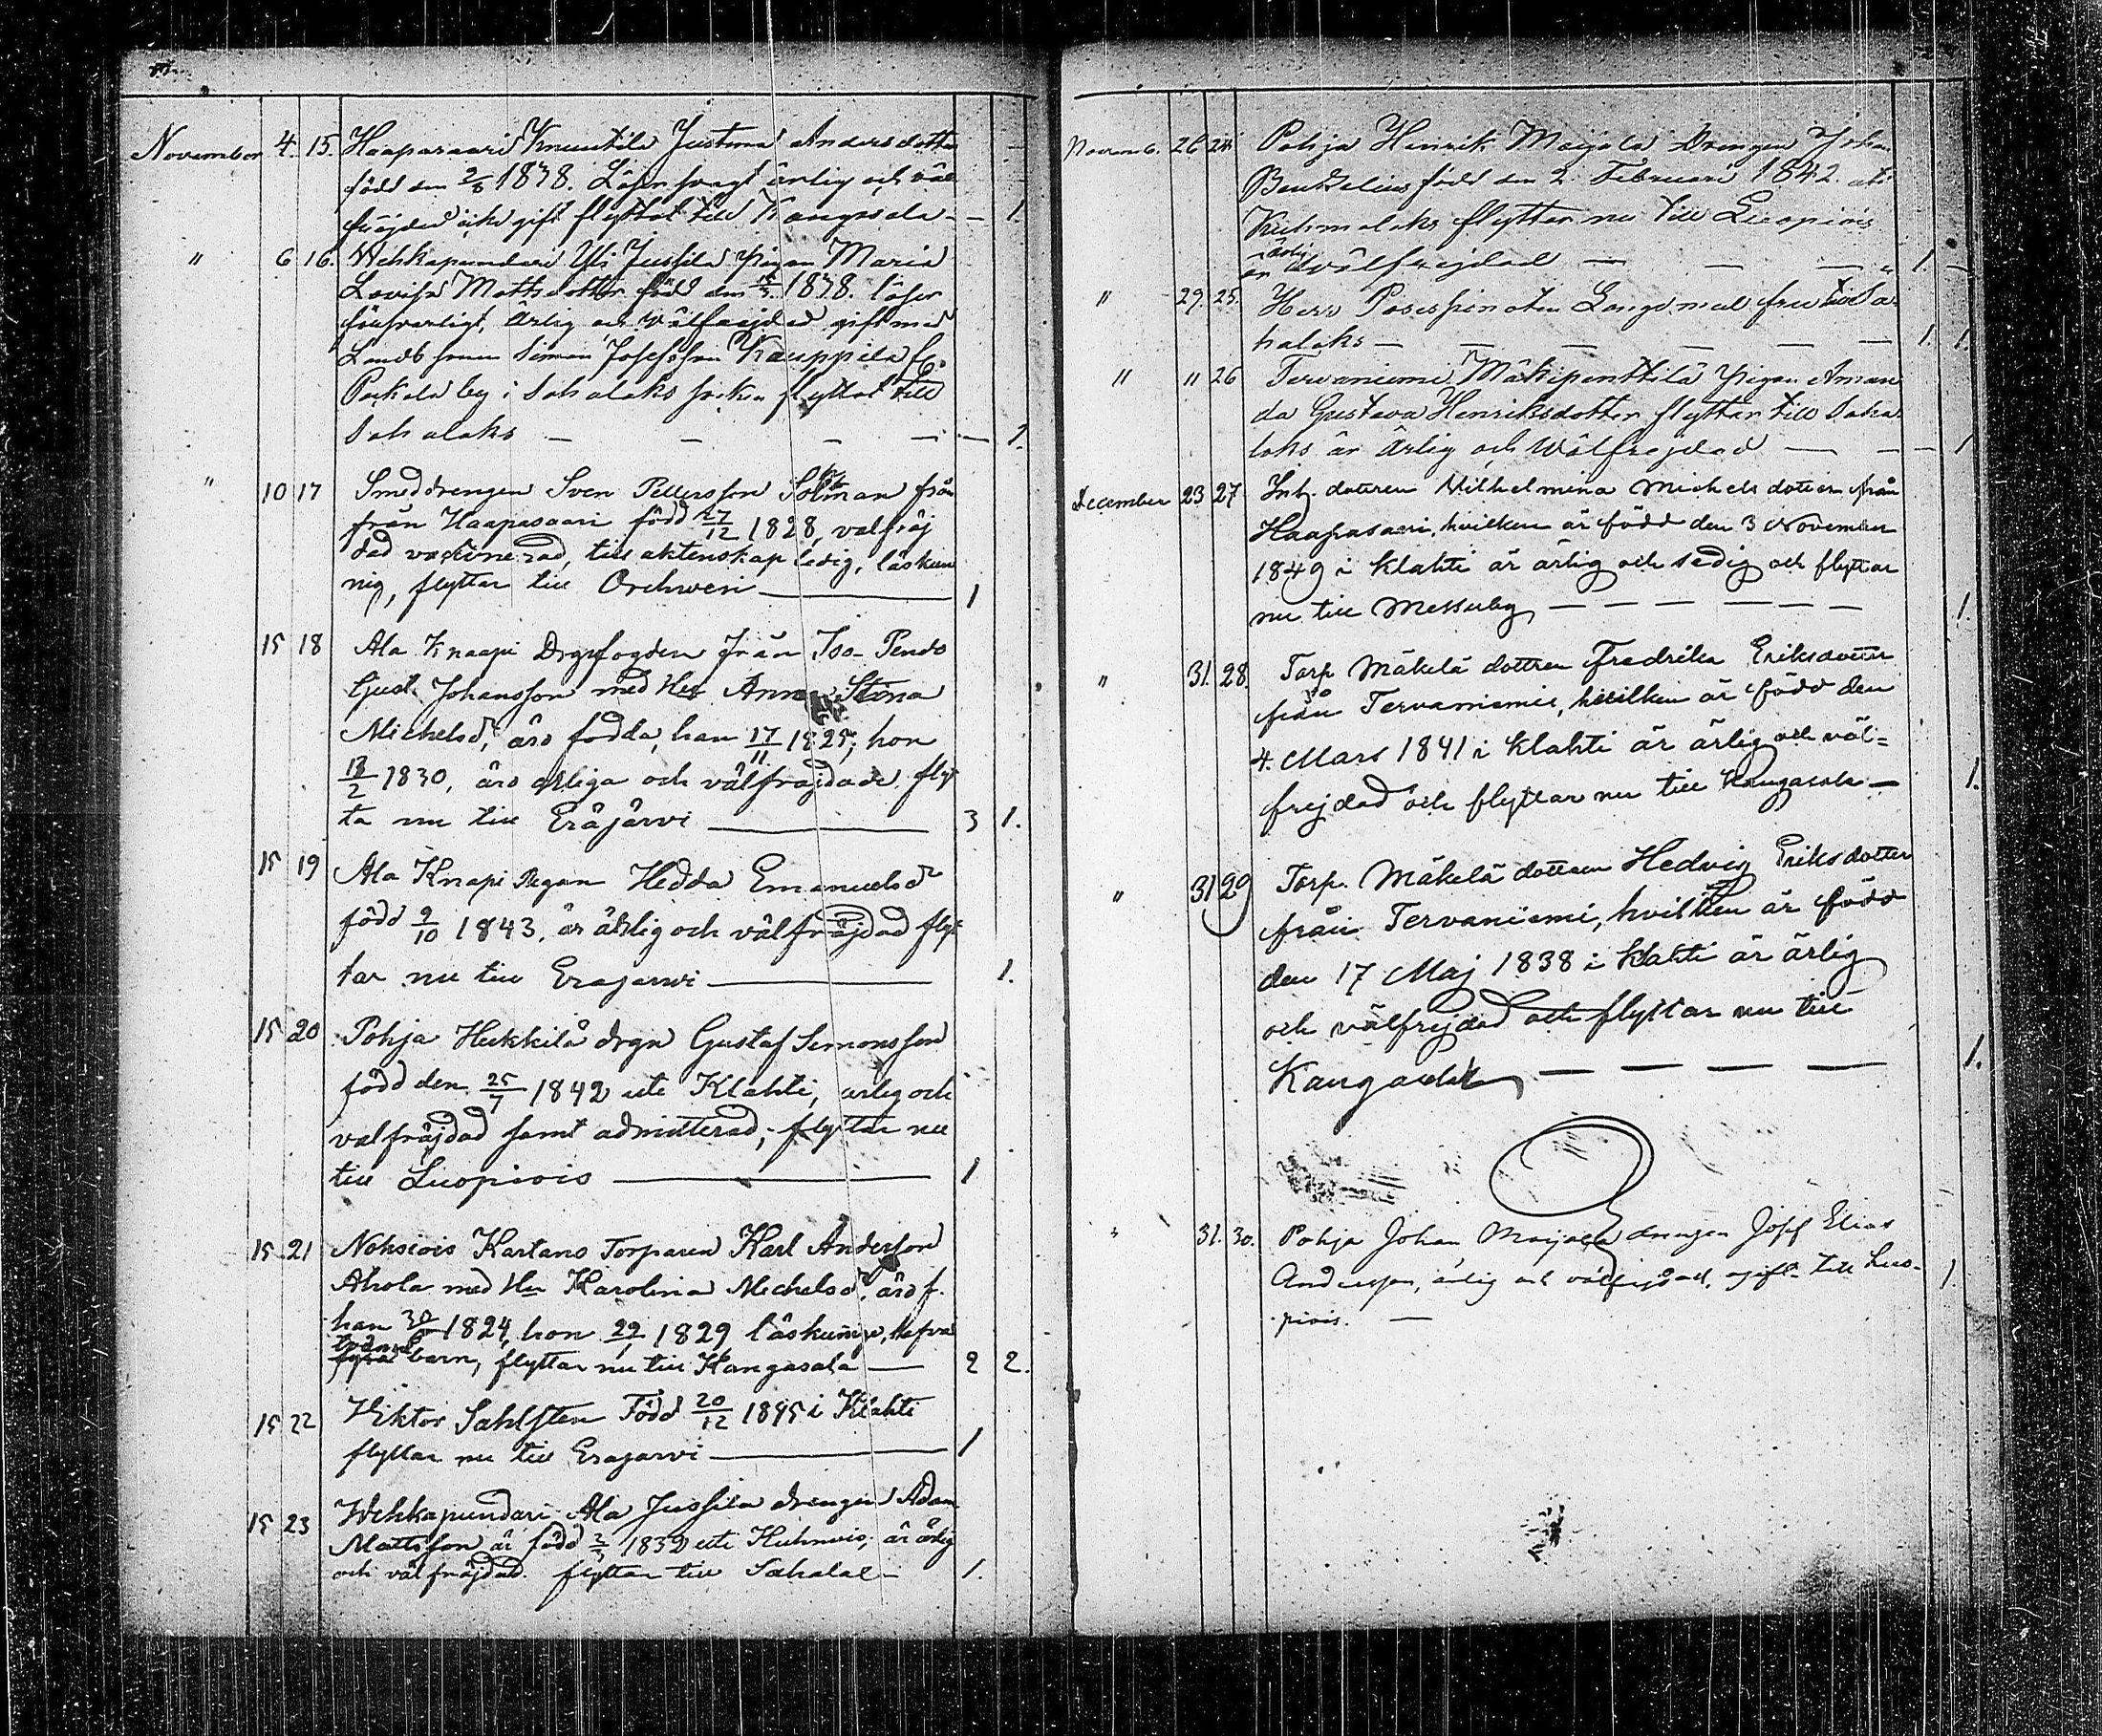 November 4. 15. Haaparaari Knuutila Justina Andersdotter
född den 2/8 1838. Läser svagt ärlig och väl
fräjdad icke gift flyttat till Kangasala - 1.
" 6 16. Wehkapundari Yli Jussila pigan Maria
Lovisa Mattsdotter född den 1838. läser
försvarligt, Ärlig och Välfräjdad gift med
Simon Josefsson Kauppila fr.
Pakkala by i Sahalaks socken flyttat till
Sahalaks — — — — — 1.
" 10 17 Smeddrengen Sven Pettersson Solman från
från Haapasaari född 27/12 1828, valfräj
dad vaccinerad, till aktenskap ledig, läskun
nig, flyttar till Orihwesi — 1
15 18 Ala Knaapi Drgsfogden från Iso-Pento
Gust. Johansson med Hu Anna Stina
Michelsdr, äro fodda, han 17/11 1825, hon
13/2 1830, äro ärliga och välfrajdade flyt
ta nu till Eräjärvi — 3 1.
15 19 Ala Knapi Pigan Hedda Emanuelsdr
född 9/10 1843, är ärlig och välfräjdad flyt
tar nu till Erajarvi — 1.
15 20 Pohja Heikkilä drgn Gustaf Simonsson
född den 25/7 1842 uti Klahti, arlig och
valfräjdad samt admitterad, flyttar nu
till Luopiois — 1
15 21 Nohkiois Kartano Torparen Karl Anderson
Ahola med Hu Karolina Michelsdr, äro f.
han 1824, hon 1829 läskunnige, hafva
tvänne fyra barn, flyttar nu till Kangasala — 2 2.
15 22 Viktor Sahlsten Född 20/12 1845 i Klahti
flyttar nu till Erajarvi — 1
15 23 Wehkapundari Ala Jussila drengen Adam
Mattsson är född 1839 uti Kuhmois, är ärlig
och välfräjdad. flyttar till Sahalal- 1.
Novemb. 26 24 Pohja Henrik Maijala Drengen Johan
född den 2 Februari 1842. uti
Kuhmalaks flyttar nu till Luopiois
är ärlig välfrejdad — — — 1. —
" 29. 25. Herr fru till Sa-
halaks — — — — — — 1. 1.
" 11 26 Tervaniemi Mäkipenttilä pigan Aman
da Gustava Henriksdotter flyttar till Saha
laks är Ärlig och Wälfrejdad — — 1
December 23 27. Inh. dottren Vilhelmina Michels dotter från
Haapasaari, hvilken är född den 3 November
1849 i Klahti är ärlig och sedig och flyttar
nu till Messuby — — — — — — 1.
" 31. 28. Torp. Mäkelä dottren Fredrika Eriksdotter
från Tervaniemi, hvilken är född den
4. Mars 1841 i Klahti är ärlig och väl=
frejdad och flyttar nu till Kangasala — 1.
" 31 29 Torp. Mäkelä dottren Hedvig Eriksdotter
från Tervaniemi, hvilken är född
den 17 Maj 1838 i Klahti är ärlig
och välfrejdad och flyttar nu till
Kangasala — — — — 1.
" 31. 30. Pohja Johan Maijala drengen Josef Elias
Andersson, ärlig och välfrejdad, ogift till Luo- 1.
piois. —